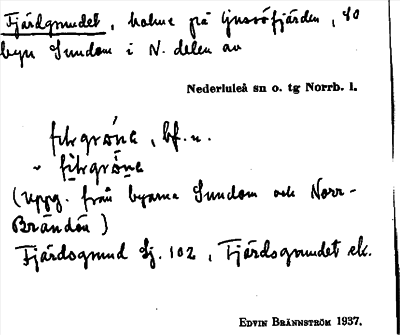 Fjärdgrundet, holme på Ljusöfjärden, SO
byn Sundom i N. delen av
Nederluleå sn o. tg Norrb. l.
bf. n.
(uppg. från byarna Sundom och Norr-
Brändön)
Fjärdsgrund Sj. 102, Fjärdsgrundet ek.
EDVIN BRÄNNSTRÖM 1937.